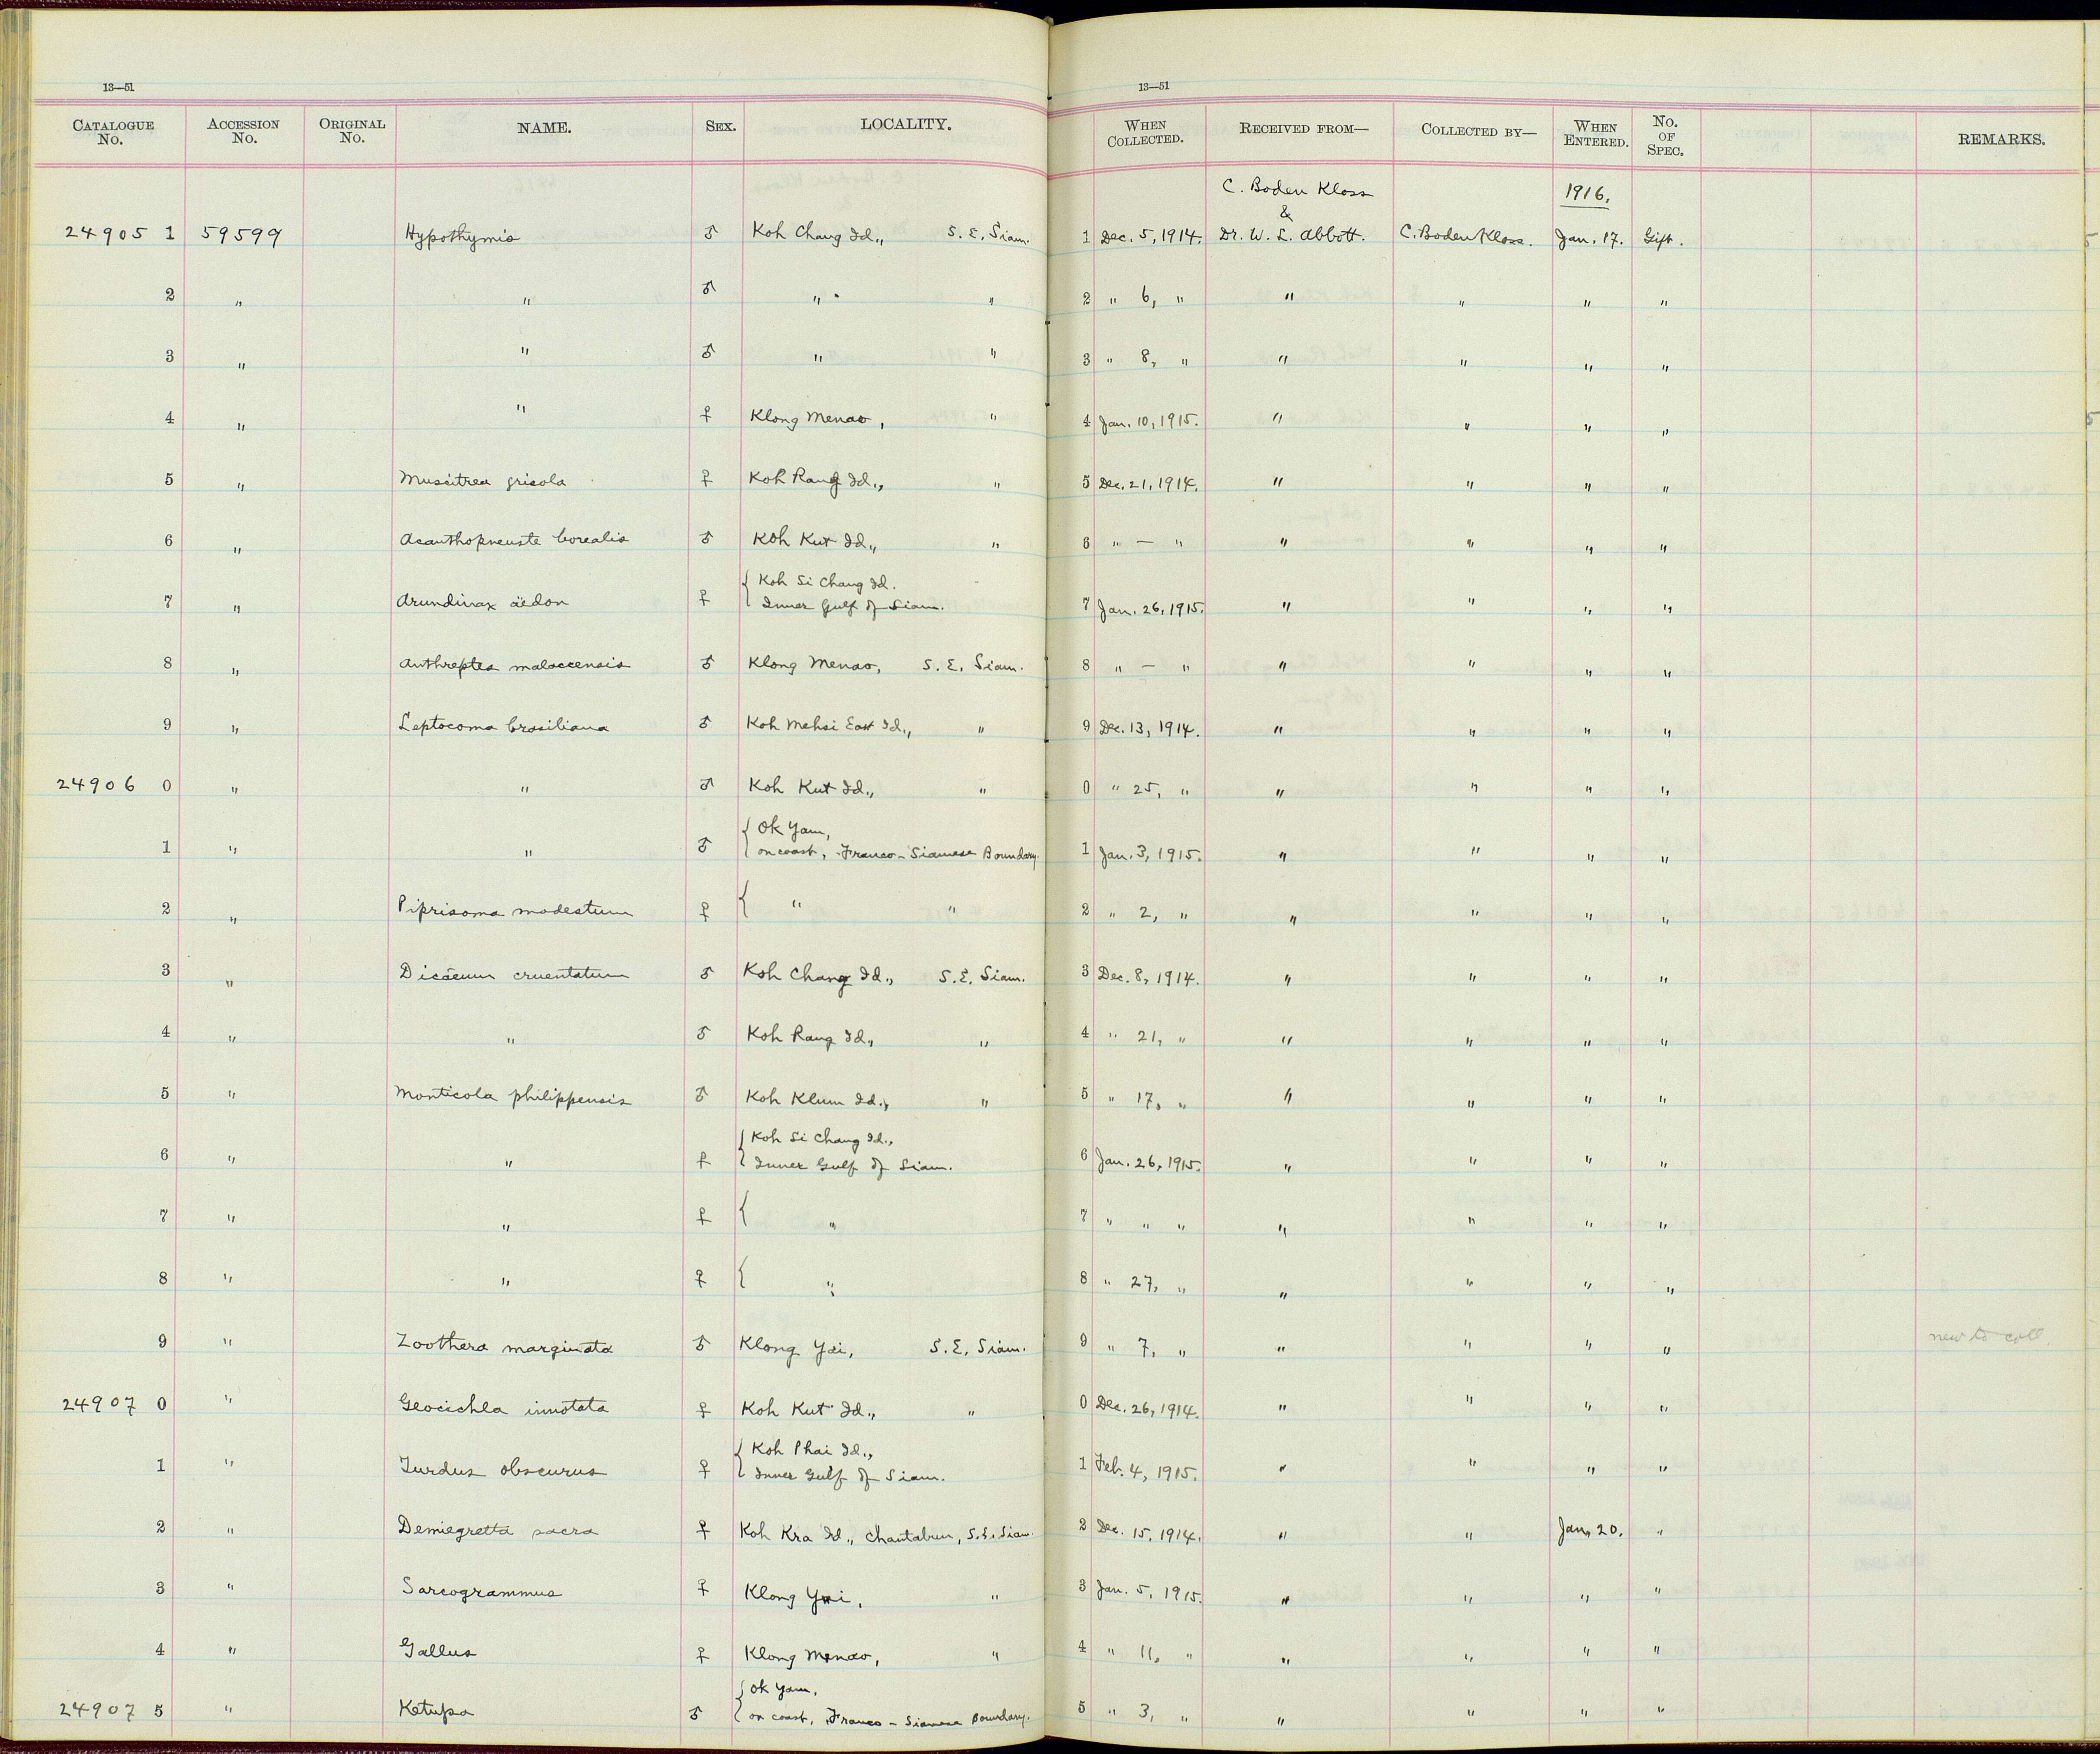 13—51
13—51
CATALOGUE No. ACCESSION No. ORIGINAL No. NAME. SEX. LOCALITY. WHEN COLLECTED. RECEIVED FROM— COLLECTED BY— WHEN ENTERED. No. OF SPEC. REMARKS.
C. Boden Kloss & 1916.
24905 1 59599 Hypothymis ♂ Koh Chang Id., S. E. Siam. 1 Dec. 5, 1914. Dr. W. L. Abbott. C. Boden Kloss. Jan. 17. Gift.
2 " " ♂ " " 2 " 6, " " " " "
3 " " ♂ " " 3 " 8, " " " " "
4 " " ♀ Klong Menao, " 4 Jan. 10, 1915. " " " "
5 " Muscitrea grisola ♀ Koh Rang Id., " 5 Dec. 21, 1914. " " " "
6 " Acanthopneuste borealis ♂ Koh Kut Id., " 6 " — " " " " "
7 " Arundinax äedon ♀ { Koh Si Chang Id.
Inner Gulf of Siam. 7 Jan. 26, 1915. " " " "
8 " Anthreptes malaccensis ♂ Klong Menao, S. E. Siam. 8 " — " " " " "
9 " Leptocoma brasiliana ♂ Koh Mehsi East Id., " 9 Dec. 13, 1914. " " " "
24906 0 " " ♂ Koh Kut Id., " 0 " 25, " " " " "
1 " " ♂ { Ok Yam,
on coast, Franco-Siamese Boundary. 1 Jan. 3, 1915. " " " "
2 " Piprisoma modestum ♀ { " " 2 " 2, " " " " "
3 " Dicaeum cruentatum ♂ Koh Chang Id., S. E. Siam. 3 Dec. 8, 1914. " " " "
4 " " ♂ Koh Rang Id., " 4 " 21, " " " " "
5 " Monticola philippensis ♂ Koh Klum Id., " 5 " 17, " " " " "
6 " " ♀ { Koh Si Chang Id.,
Inner Gulf of Siam. 6 Jan. 26, 1915. " " " "
7 " " ♀ { " 7 " " " " " " "
8 " " ♀ { " 8 " 27, " " " " "
9 " Zoothera marginata ♂ Klong Yai, S. E. Siam. 9 " 7, " " " " " new to coll.
24907 0 " Geocichla innotata ♀ Koh Kut Id., " 0 Dec. 26, 1914. " " " "
1 " Turdus obscurus ♀ { Koh Phai Id.,
Inner Gulf of Siam. 1 Feb. 4, 1915. " " " "
2 " Demiegretta sacra ♀ Koh Kra Id., Chantabun, S. E. Siam. 2 Dec. 15, 1914. " " Jan. 20. "
3 " Sarcogrammus ♀ Klong Yai, " 3 Jan. 5, 1915. " " " "
4 " Gallus ♀ Klong Menao, " 4 " 11, " " " " "
24907 5 " Ketupa ♂ { Ok Yam,
on coast, Franco-Siamese Boundary. 5 " 3, " " " " "